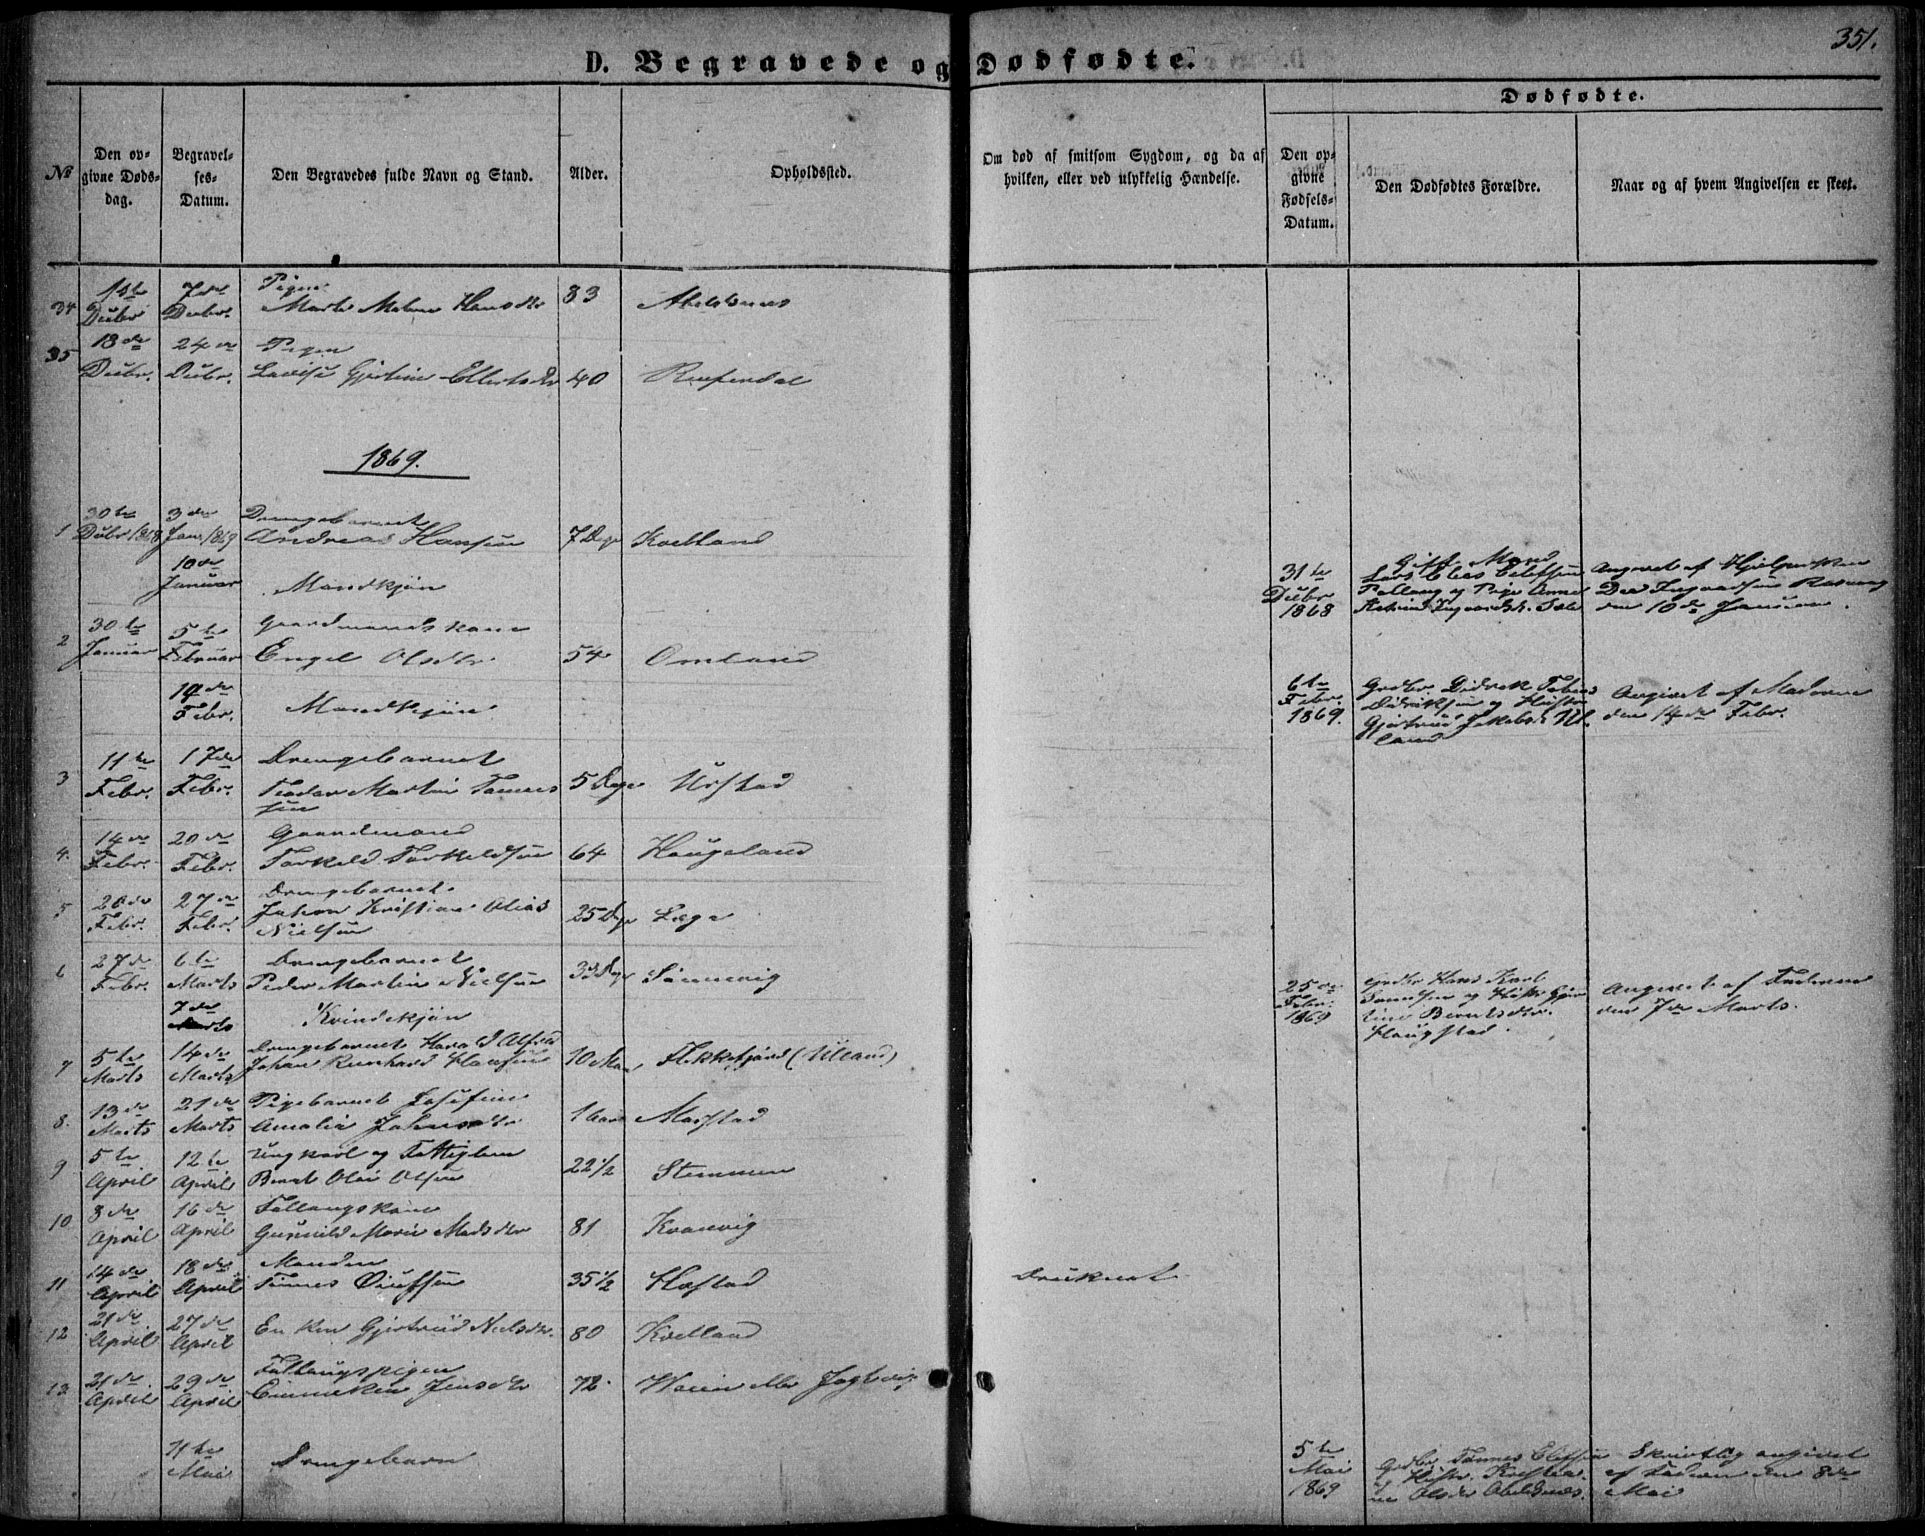 351.
D. Begravede og Dødfødte.
Dødfødte.
№
Den opgivne Dødsdag.
Begravelses-Datum.
Den Begravedes fulde Navn og Stand.
Alder.
Opholdssted.
Om død af smitsom Sygdom, og da af hvilken, eller ved ulykkelig Hændelse.
Den opgivne Fødsels-Datum.
Den Dødfødtes Forældre.
Naar og af hvem Angivelsen er skeet.
34 Decbr 7de Decbr. Pigen Marte Malene Hansdtr 83 Abelsnes
35 18de Decbr. 24de Decbr. Pigen Lavise Gjertine Ellertsdtr 40
1869.
1 30te Decbr 1868 3de Jan. 1869 Drengebarnet Andreas Hansen 7 Dage Kvelland
10de Januar Mandkjøn
31te Decbr 1868 Gift Mand Lars Elias Pige Anne Ingvardsdtr.
Angivet af den 10de Januar.
2 30te Januar 5te Februar Gaardmandskone Engel Olsdtr. 54 Omland
Febr. Mandkjøn
6te Febr. 1869. Grdbr. Didrik Tobias Didriksen og Hustru Gjertrud Jakobsd. Ulland
Angivet af Moderen den 14de Febr.
3 11te Febr. 17de Febr. Drengebarnet Teodor Martin Tønnessen 5 Dage Urstad
4. 14de Febr. 20de Febr. Gaardmand Torkeld Torkeldsen 64 Haugeland
5 20de Febr. 27de Febr. Drengebarnet Johan Kristian Olias Nielsen 25 Dage Løge
6 27de Febr. 6te Marts Drengebarnet Peder Martin Nielsen 33 Dage Sønnevig
7de Marts Kvindekjøn
25de Febr. 1869 Grdbr Hans Karl og Hustr Gjertine Berntsdtr. Haugstad.
Angivet af Faderen den 7de Marts.
7 5te Marts 14de Marts Drengebarnet Harald Alfred Johan Reinhard Hansen 10 Flekkefjord (Ulland)
8. 13de Marts 21de Marts Pigebarnet Josefine Amalie Johnsdtr 1 aar
9 5te April 12te April Ungkarl og Fattiglem Bernt Olai Olsen 22½ Stemmen
10 8de April 16de April Føllaugskone Gunnild Marie Madsdtr 81 Kvanvig
11 14de April 18de April Manden Tønnes 35½ Hæstad Druknet
12 21de April 27de April Enken Gjertrud Nielsdtr. 80 Kvelland
13 21de April 29de April Føllaugspigen Jensdtr 72. eller
11te Mai Drengebarn
5te Mai 1869 Grdbr. Tønnes og Hustr. Olsdtr Abelsnes.
Skriftlig angivet af Faderen den 8de Mai